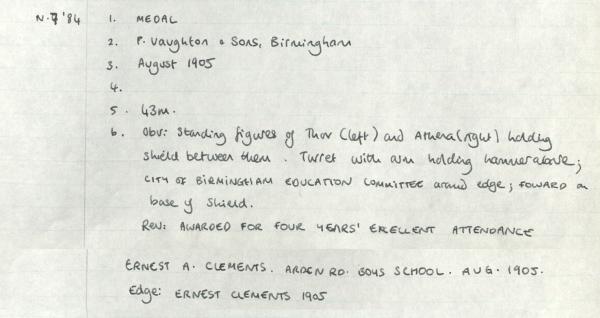 N.7'84 1. MEDAL
2. P. Vaughton & Sons, Birmingham
3. August 1905
4.
5. 43m.
6. Obv: Standing figures of Thor (left) and Athena (right) holding
shield between them. Turret with arm holding hammer above;
CITY OF BIRMINGHAM EDUCATION COMMITTEE around edge; FOWARD on
base of shield.
Rev: AWARDED FOR FOUR YEARS' EXELLENT ATTENDANCE
ERNEST A. CLEMENTS. ARDEN RD. BOYS SCHOOL. AUG. 1905.
Edge: ERNEST CLEMENTS 1905